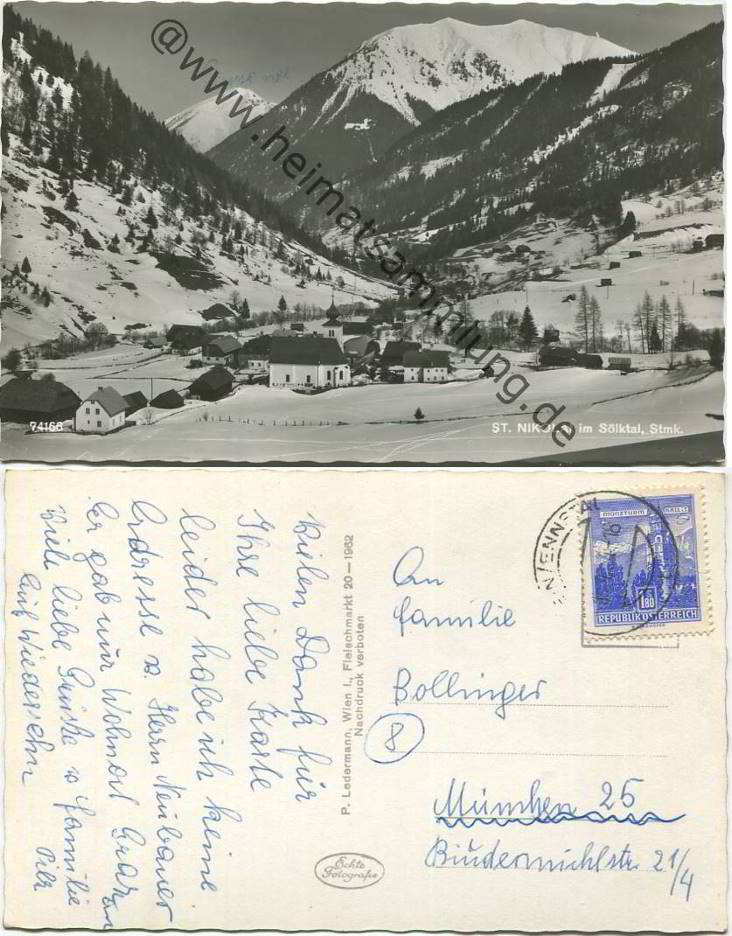 @www.heimatsammlung.de
74166
ST. NIKOLAI im Sölktal, Stmk.
Vielen Dank für
Ihre liebe Karte
leider habe ich keine
Adresse v. Herrn Neubauer
Er gab nur Wohnort Graz an
Viele liebe Grüsse v. Familie
Pilz
Auf Wiedersehn
P. Ledermann, Wien I., Fleischmarkt 20—1962
Nachdruck verboten
Echte
Fotografie
/ENNSTAL
MÜNZTURM
1.80
REPUBLIK ÖSTERREICH
An
Familie
Bollinger
8
München 25
21/4